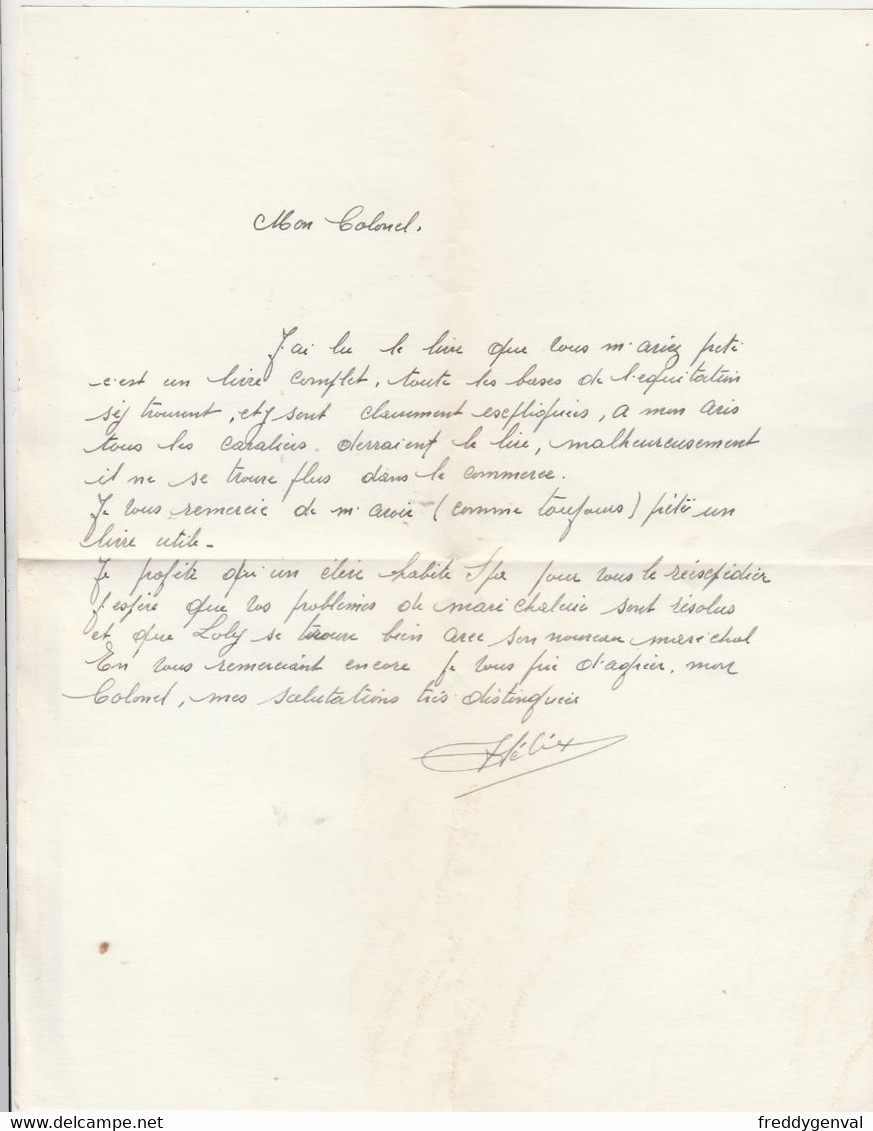 Mon Colonel.
J'ai lu le livre que vous m'aviez preté
c'est un livre complet, toute les bases de l'equitation
s'éy trouvent, et y sont clairement esepliquées, a mon avis
tous les cavaliers devraient le lire, malheureusement
il ne se trouve plus dans le commerce.
Je vous remercie de m'avoir (comme toujours) prété un
livre utile.
Je profite qu'un élève habite Spa pour vous le réesepédier
J'espère que vos problèmes de maréchalerie sont résolus
et que Loly se trouve bien avec son nouveau maréchal
En vous remerciant encore je vous prie d'agréer, mon
Colonel, mes salutations très distinguées
freddygenval
www.delcampe.net